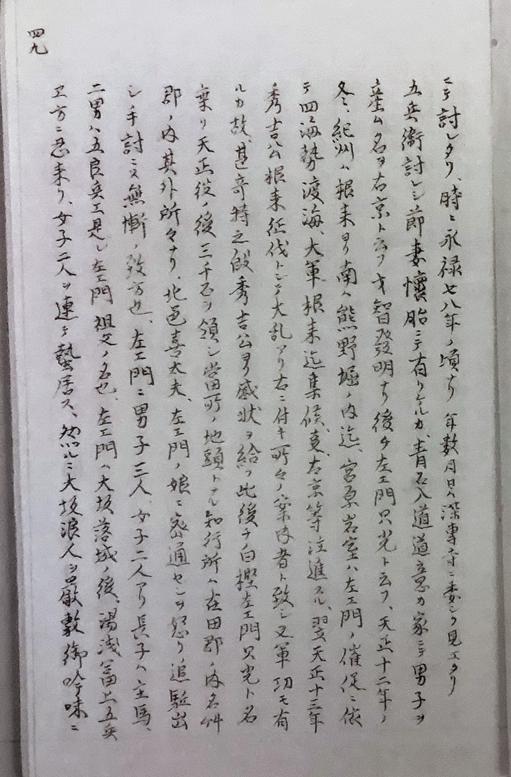 ニテ討レタリ、時ニ永禄七八年ノ頃ナリ 年数月日ハ深専寺ニ委シク見エタリ
五兵衛討レシ節妻懐胎ニテ有リケルカ、青石入道道意カ家ニテ男子ヲ
産ム名ヲ右京ト云フ才智發明ナリ後チ左エ門只光ト云フ、天正十二年ノ
冬、紀州ハ根来ヨリ南ハ熊野堀ノ内迄、宮原岩室ハ左エ門ノ催促ニ依
テ四海勢渡海、大軍根来迄集候、是右京等注進スル、翌天正十三年
秀吉公根来征伐トシテ大乱アリ右ニ付キ所々ノ案内者ト致シ又軍功モ有
ルカ故、甚奇特之段秀吉公ヨリ感状ヲ給フ此後チ白樫左エ門只光ト名
乗リ天正役ノ後三千石ヲ領シ當所ノ地頭トナル知行所ハ在田郡ノ内名艸
郡ノ内其外所々ナリ、北邑善太夫、左エ門ノ娘ニ密通センヲ怒リ追駈出
シ手討ニス無慚ノ致方也、左エ門ニ男子三人、女子二人アリ長子ハ主馬、
二男ハ五良兵エ是レ左エ門祖父ノ名也、左エ門ハ大坂落城ノ後、湯浅冨上五兵
ヱ方ニ忍来リ、女子二人ヲ連テ蟄居ス、然ルニ大坂浪人ヲ厳敷御吟味ニ
四九